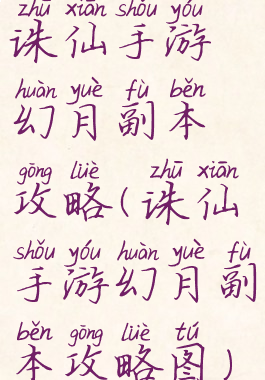 zhū xiān shǒu yóu
诛仙手游
huàn yuè fù běn
幻月副本
gōng lüè zhū xiān
攻略(诛仙
shǒu yóu huàn yuè fù
手游幻月副
běn gōng lüè tú
本攻略图)